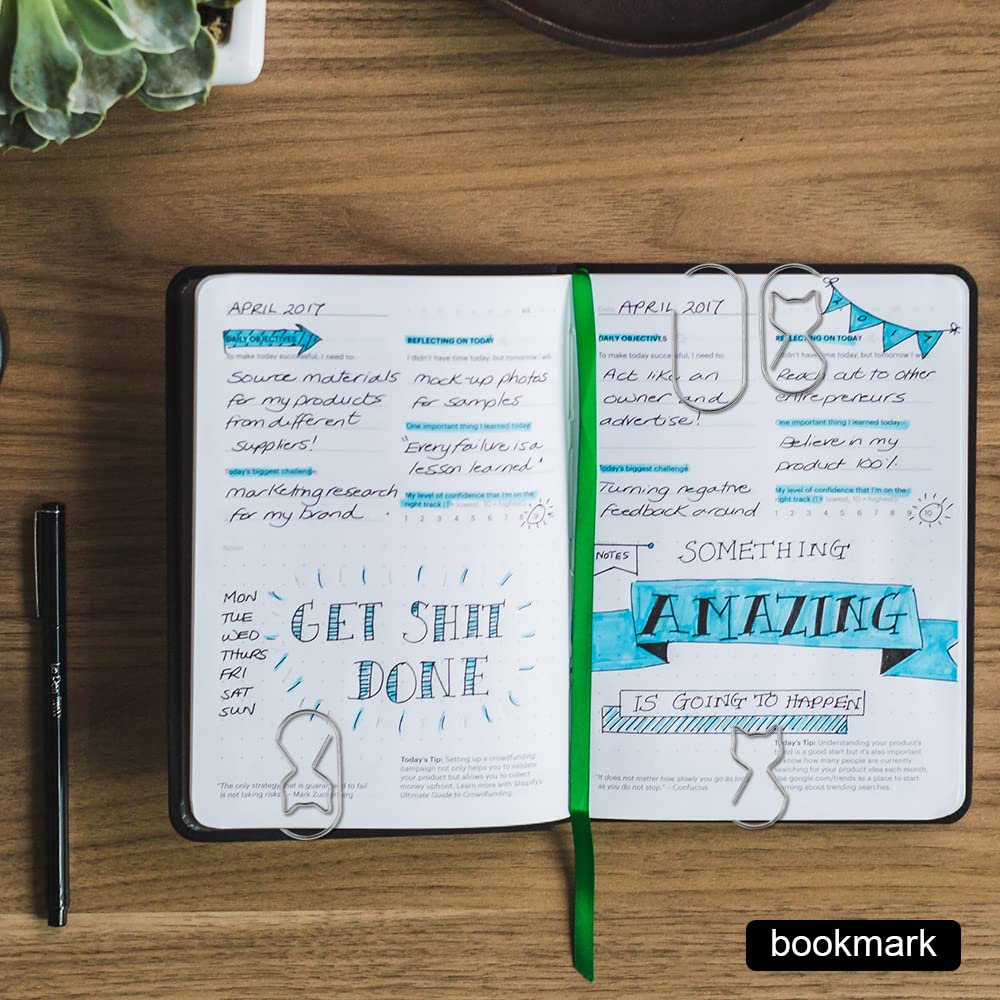 APRIL 2017
DAILY OBJECTIVES
To make today successful, I need to:
Source materials
for my products
from different
suppliers!
Today's biggest challenge
marketing research
for my brand.
REFLECTING ON TODAY
I didn't have time today, but tomorrow I will
mock-up photos
for samples
One important thing I learned today
"Every failure is a
lesson learned"
My level of confidence that I'm on the
right track (1= lowest, 10 = highest)
1 2 3 4 5 6 7 8 9
Notes
MON
TUE
WED
THURS
FRI
SAT
SUN
GET SHIT
DONE
"The only strategy that is guaranteed to fail
is not taking risks." - Mark Zuckerberg
Today's Tip: Setting up a crowdfunding
campaign not only helps you to validate
your product but allows you to collect
money upfront. Learn more with Shopify's
Ultimate Guide to Crowdfunding.
Date
APRIL 2017
DAILY OBJECTIVES
To make today successful, I need to:
Act like an
owner and
advertise!
Today's biggest challenge
Turning negative
feedback around
REFLECTING ON TODAY
I didn't have time today, but tomorrow I will
Reach out to other
entrepreneurs
One important thing I learned today
Believe in my
product 100%.
My level of confidence that I'm on the
right track (1= lowest, 10 = highest)
1 2 3 4 5 6 7 8 9 10
NOTES
SOMETHING
AMAZING
IS GOING TO HAPPEN
"It does not matter how slowly you go as long
as you do not stop." - Confucius
Today's Tip: Understanding your product's
trend is a good start but it's also important
to know how many people are currently
searching for your product idea each month.
Use google.com/trends as a place to start
learning about trending searches.
bookmark